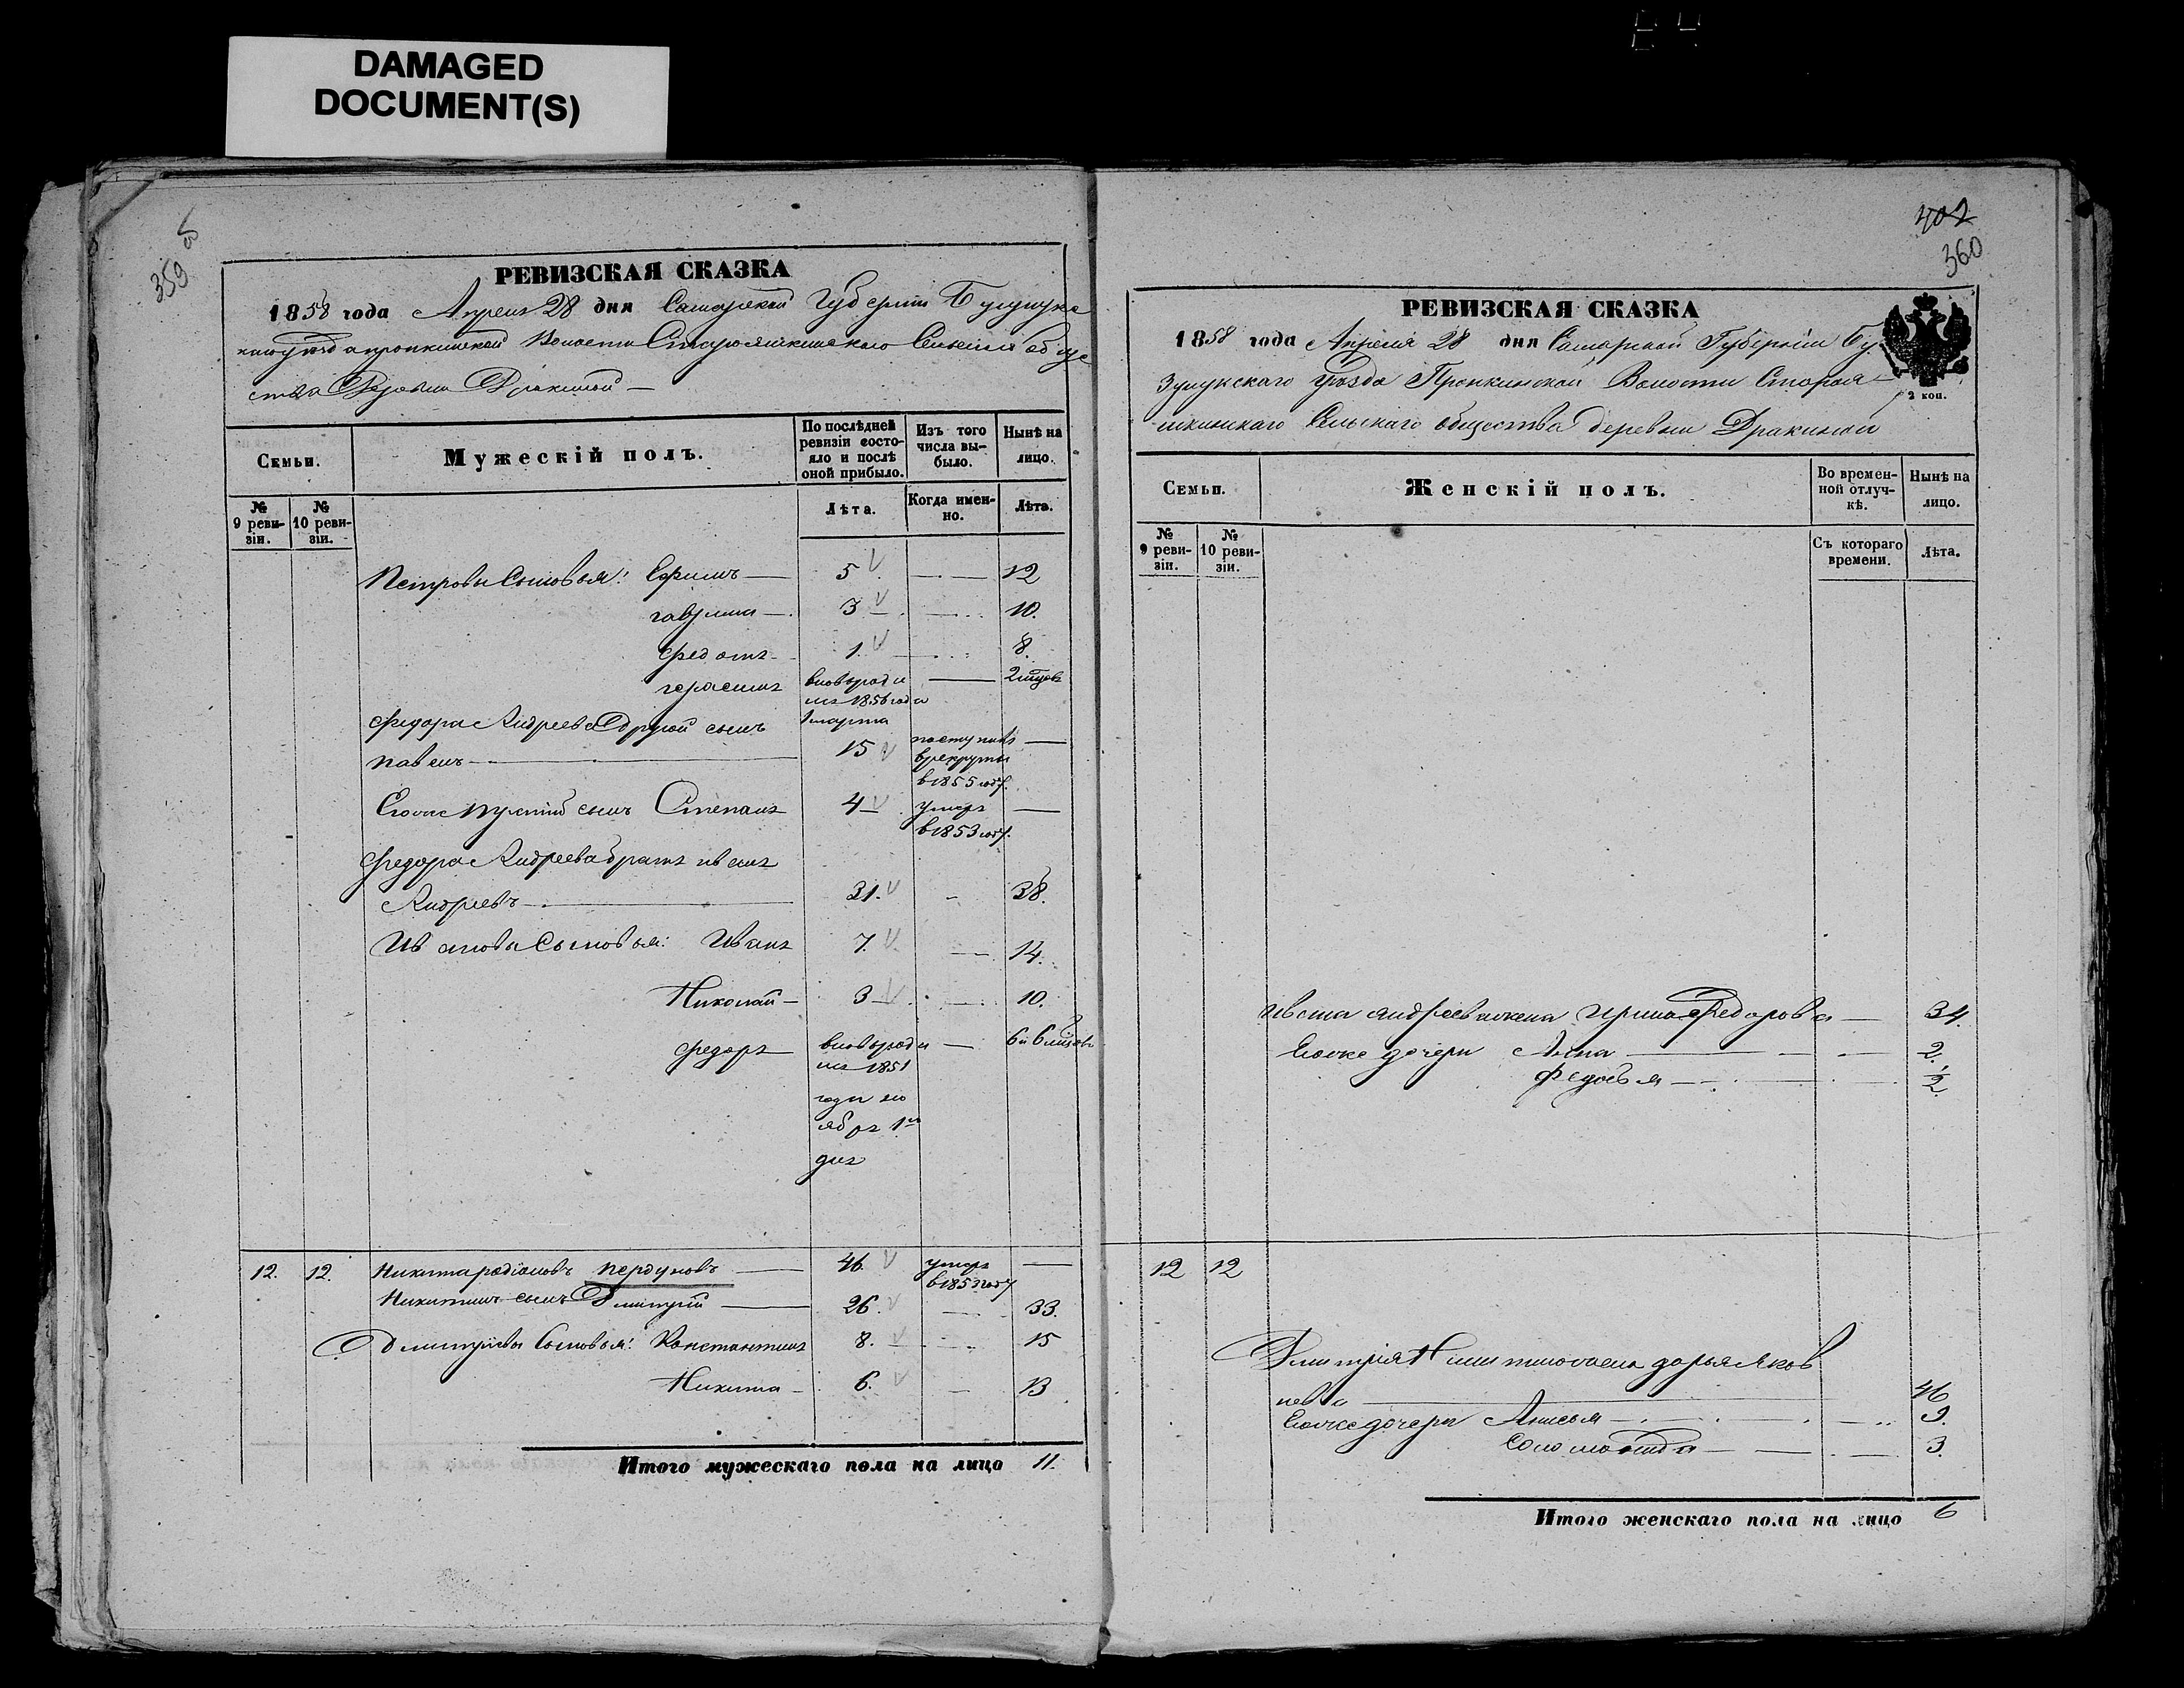 DAMAGED
DOCUMENT(S)
359 об
РЕВИЗСКАЯ СКАЗКА
1858 года Апреля 28 дня Самарской Губерніи Бузулукс
каго уезда пронкинской Волости Староякшинскаго Сельскаго общс
ства Деревни Дракиной
Семьи.
Мужескій полъ.
По послѣдней
ревизіи состо-
яло и послѣ
оной прибыло.
Изъ того
числа вы-
было.
Нынѣ на
лицо.
№
9 реви-
зіи.
№
10 реви-
зіи.
Лѣта.
Когда имен-
но.
Лѣта.
Петровы Сыновья: Ефимъ 5 12
гаврила 3 10.
Федотъ 1. 8.
герасимъ вновьроди 2 мцов
лся 1856 года
1 марта
Федора Андреева другой сынъ
павелъ 15 поступилъ
врекруты
в 1855 году.
Егоже третий сынъ Степанъ 4 умеръ
в 1853 году.
Федора Андреева братъ иванъ
Андреевъ 31. 38.
Ивановы Сыновья: Иванъ 7. 14.
Николай 3 10.
Федоръ вновьроди 6 и 6 мцов
лся 1851
года но
ябръ 1го
дня
12. 12. Никита родіоновъ пердуновъ 46. умеръ
в 1853 году
Никитинъ сынъ Дмитрий 26. 33.
Дмитріевы Сыновья: Константинъ 8. 15
Никита 6. 13
Итого мужескаго пола на лицо 11.
402
360
РЕВИЗСКАЯ СКАЗКА
1858 года Апреля 28 дня Самарской Губерніи Бу
зулукскаго уѣзда Пронкинской Волости Староя-
кшинскаго Сельскаго общества деревни Дракиной
2 коп.
Семьи.
Женскій полъ.
Во времен-
ной отлуч-
кѣ.
Нынѣ на
лицо.
№
9 реви-
зіи.
№
10 реви-
зіи.
Съ котораго
времени.
Лѣта.
Ивана андреева жена Ирина Федорова 34.
Егоже дочери Анна 2.
Федосья 1/2
12 12
Дмитрія Никитина жена дарья Яков
лева 46
Егоже дочери Анисья 9.
Соломонида 3.
Итого женскаго пола на лицо 6